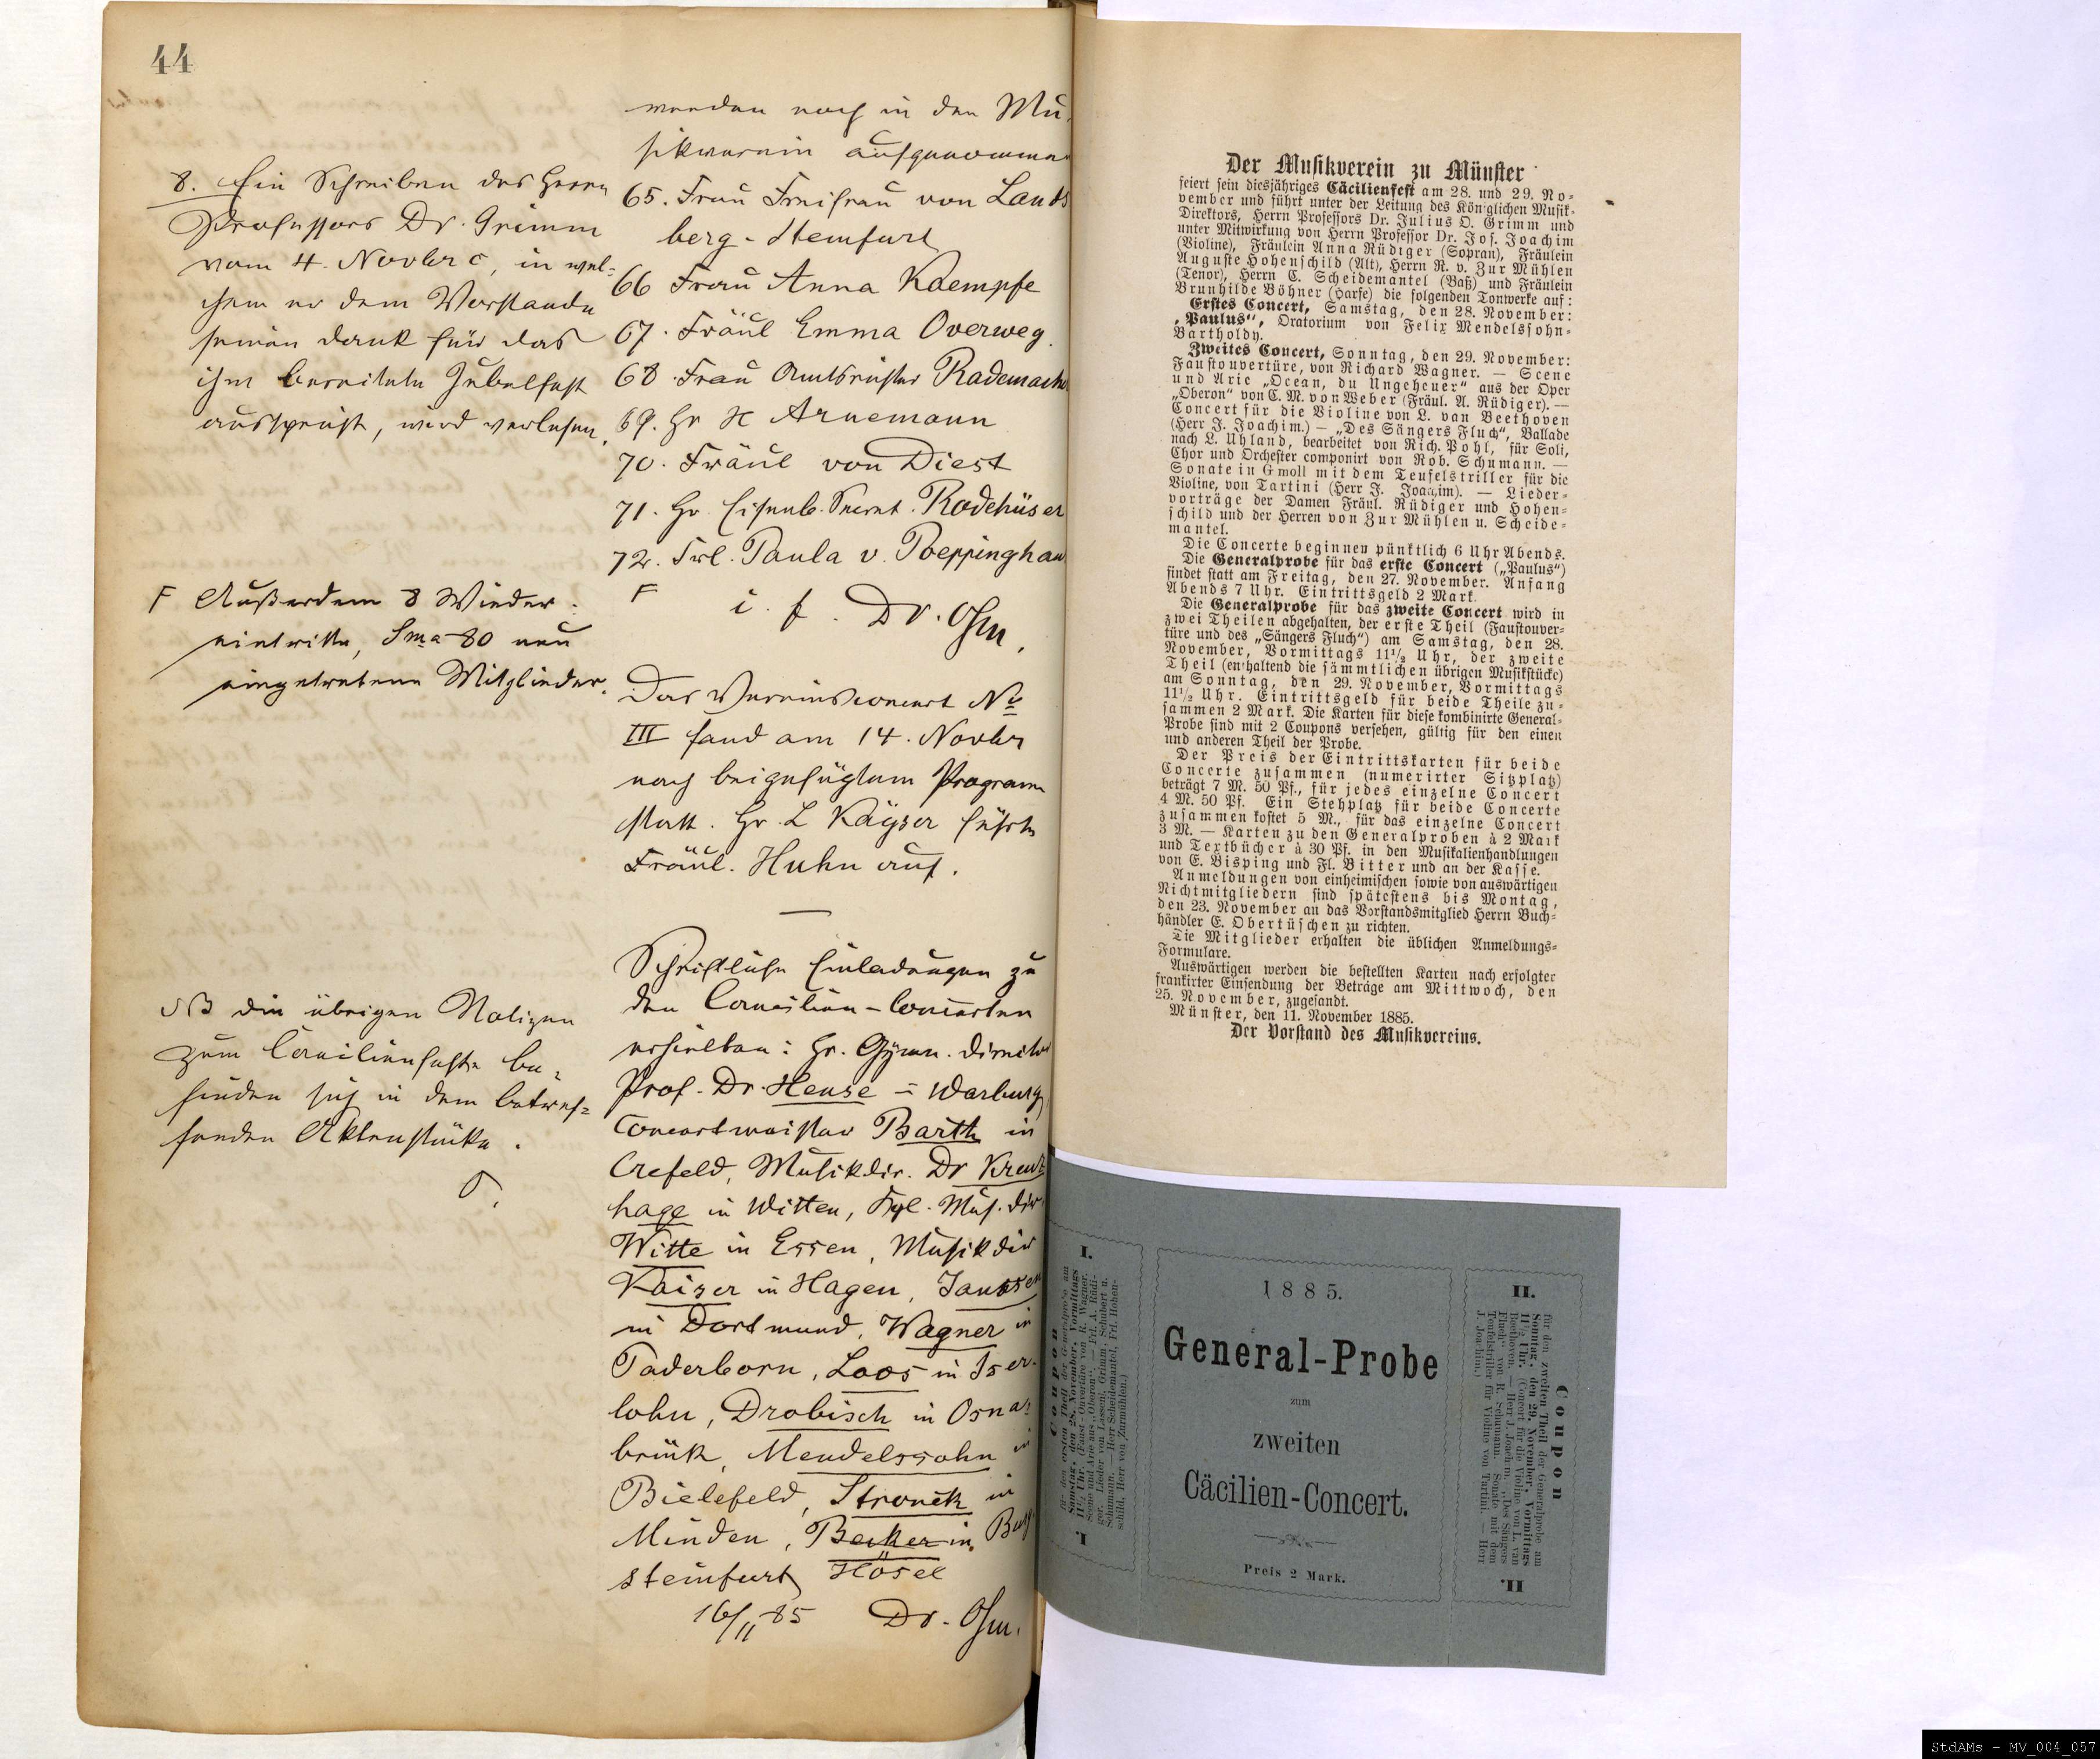 44
8. Ein Schreiben des Herrn
Professors Dr. Grimm
vom 4. Novbr c, in wel=
chem er dem Vorstande
seinen Dank für das
ihm bereitete Jubelfest
ausspricht, wird verlesen.
F Außerdem 8 Wieder-
eintritte, Sma 80 neu
eingetretene Mitglieder.
NB die übrigen Notizen
zum Caecilienfeste be=
finden sich in dem betref=
fenden Aktenstücke.
werden noch in den Mu
sikverein aufgenommen
65. Frau Freifrau von Lands
berg-Steinfurt
66 Frau Anna Kaempfe
67. Fräul Emma Overweg.
68. Frau Amtsrichter Rademacher
69. Hr H Arnemann
70. Fräul von Diest
71. Hr Eisenb. Sekret. Rodehüser
72. Frl. Paula v. Poeppinghau
F
i. f. Dr. Ohm.
Das Vereinsconcert No
III fand am 14. Novbr
nach beigefügtem Program
statt. Hr. L Kayser führte
Fräul. Huhn auf.
Schriftliche Einladungen zu
den Caecilien-Concerten
erhielten: Hr. Gymn. Direktor
Prof. Dr. Hense = Warburg
Concertmeister Barth in
Crefeld, Musikdir. Dr Kreuz
hage in Witten, Kgl. Mus. dir
Witte in Essen, Musikdir
Kaiser in Hagen, Janssen
in Dortmund, Wagner in
Paderborn, Loos in Iser-
lohn, Drobisch in Osna=
brück, Mendelssohn in
Bielefeld, Stronck in
Minden, Becker in Burg
steinfurt Hösel
16/11 85 Dr. Ohm.
Der Musikverein zu Münster
feiert sein diesjähriges Cäcilienfest am 28. und 29. No-
vember und führt unter der Leitung des Königlichen Musik-
Direktors, Herrn Professors Dr. Julius O. Grimm und
unter Mitwirkung von Herrn Professor Dr. Jos. Joachim
(Violine), Fräulein Anna Rüdiger (Sopran), Fräulein
Auguste Hohenschild (Alt), Herrn R. v. Zur Mühlen
(Tenor), Herrn C. Scheidemantel (Baß) und Fräulein
Brunhilde Böhner (Harfe) die folgenden Tonwerke auf:
Erstes Concert, Samstag, den 28. November:
„Paulus“, Oratorium von Felix Mendelssohn-
Bartholdy.
Zweites Concert, Sonntag, den 29. November:
Faustouvertüre, von Richard Wagner. — Scene
und Arie „Ocean, du Ungeheuer“ aus der Oper
„Oberon“ von C. M. von Weber (Fräul. A. Rüdiger). —
Concert für die Violine von L. van Beethoven
(Herr J. Joachim.) — „Des Sängers Fluch“, Ballade
nach L. Uhland, bearbeitet von Rich. Pohl, für Soli,
Chor und Orchester componirt von Rob. Schumann. —
Sonate in G moll mit dem Teufelstriller für die
Violine, von Tartini (Herr J. Joachim). — Lieder-
vorträge der Damen Fräul. Rüdiger und Hohen-
schild und der Herren von Zur Mühlen u. Scheide-
mantel.
Die Concerte beginnen pünktlich 6 Uhr Abends.
Die Generalprobe für das erste Concert („Paulus“)
findet statt am Freitag, den 27. November. Anfang
Abends 7 Uhr. Eintrittsgeld 2 Mark.
Die Generalprobe für das zweite Concert wird in
zwei Theilen abgehalten, der erste Theil (Faustouver-
türe und des „Sängers Fluch“) am Samstag, den 28.
November, Vormittags 11½ Uhr, der zweite
Theil (enthaltend die sämmtlichen übrigen Musikstücke)
am Sonntag, den 29. November, Vormittags
11½ Uhr. Eintrittsgeld für beide Theile zu-
sammen 2 Mark. Die Karten für diese kombinirte General-
Probe sind mit 2 Coupons versehen, gültig für den einen
und anderen Theil der Probe.
Der Preis der Eintrittskarten für beide
Concerte zusammen (numerirter Sitzplatz)
beträgt 7 M. 50 Pf., für jedes einzelne Concert
4 M. 50 Pf. Ein Stehplatz für beide Concerte
zusammen kostet 5 M., für das einzelne Concert
3 M. — Karten zu den Generalproben à 2 Mark
und Textbücher à 30 Pf. in den Musikalienhandlungen
von E. Bisping und Fl. Bitter und an der Kasse.
Anmeldungen von einheimischen sowie von auswärtigen
Nichtmitgliedern sind spätestens bis Montag,
den 23. November an das Vorstandsmitglied Herrn Buch-
händler E. Obertüschen zu richten.
Die Mitglieder erhalten die üblichen Anmeldungs-
Formulare.
Auswärtigen werden die bestellten Karten nach erfolgter
frankirter Einsendung der Beträge am Mittwoch, den
25. November, zugesandt.
Münster, den 11. November 1885.
Der Vorstand des Musikvereins.
I.
Coupon
für den ersten Theil der Generalprobe am
Samstag, den 28. November, Vormittags
11½ Uhr. (Faust-Ouvertüre von R. Wagner.
Scene und Arie aus „Oberon“. — Frl. A. Rüdi-
ger. Lieder von Lassen, Grimm, Schubert u.
Schumann. — Herr Scheidemantel, Frl. Hohen-
schild, Herr von Zurmühlen.)
I
1885.
General-Probe
zum
zweiten
Cäcilien-Concert.
Preis 2 Mark.
II.
Coupon
für den zweiten Theil der Generalprobe am
Sonntag, den 29. November, Vormittags
11½ Uhr. (Concert für die Violine von L. van
Beethoven. — Herr J. Joachim. „Des Sängers
Fluch“ von R. Schumann. Sonate mit dem
Teufelstriller für Violine von Tartini. — Herr
J. Joachim.)
II.
StdAMs - MV_004_057